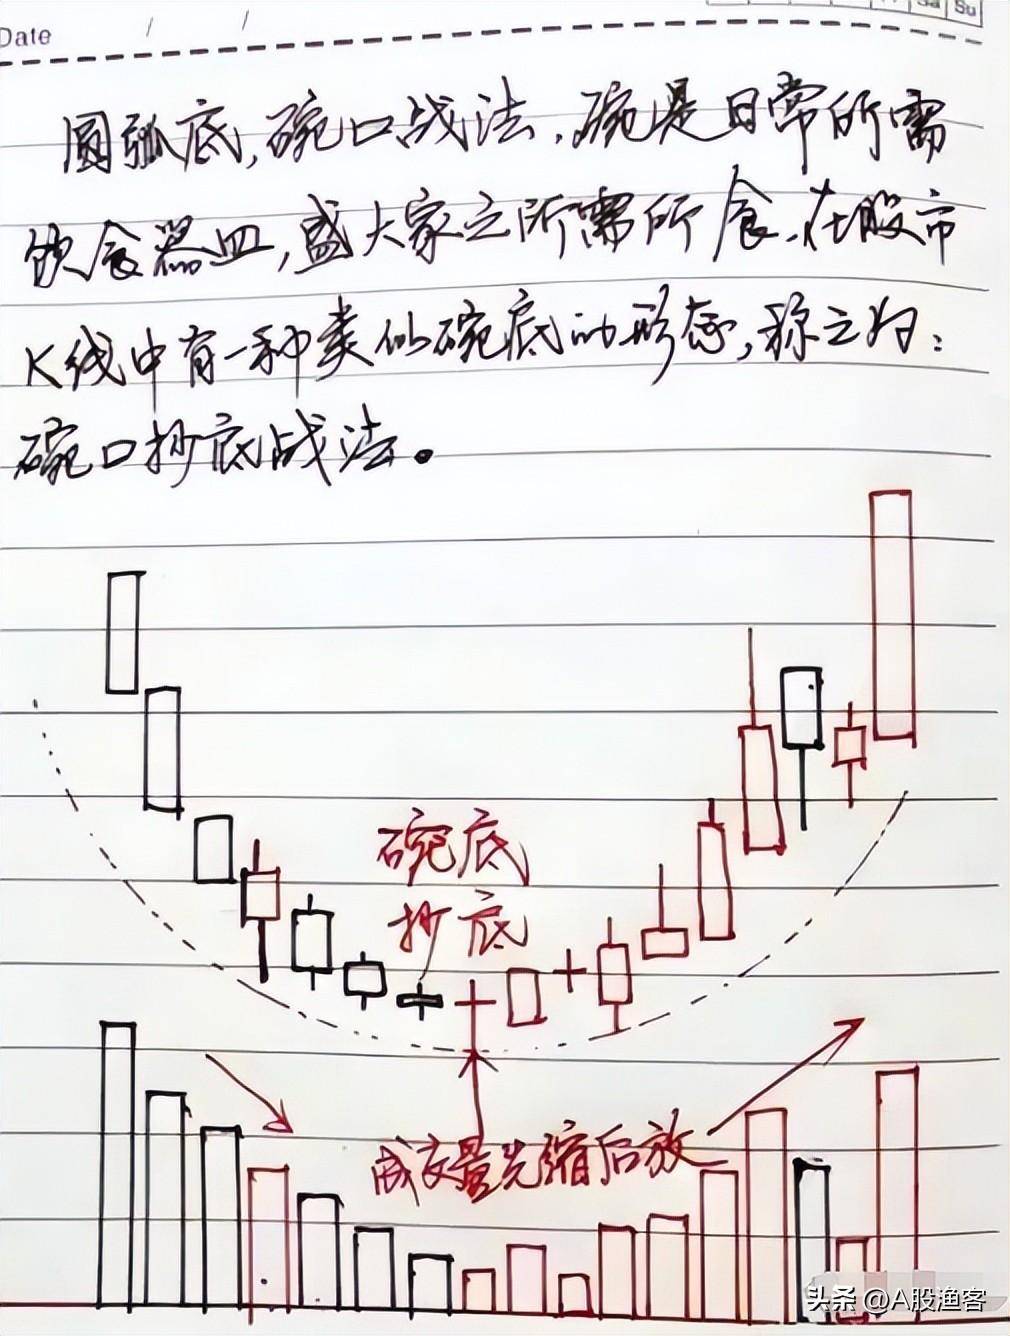 Date / /
Sa Su
圆弧底,碗口战法,碗是日常所需
饮食器皿,盛大家之所需所食.在股市
K线中有一种类似碗底的形态,称之为:
碗口抄底战法。
碗底
抄底
成交量先缩后放
头条 @A股渔客